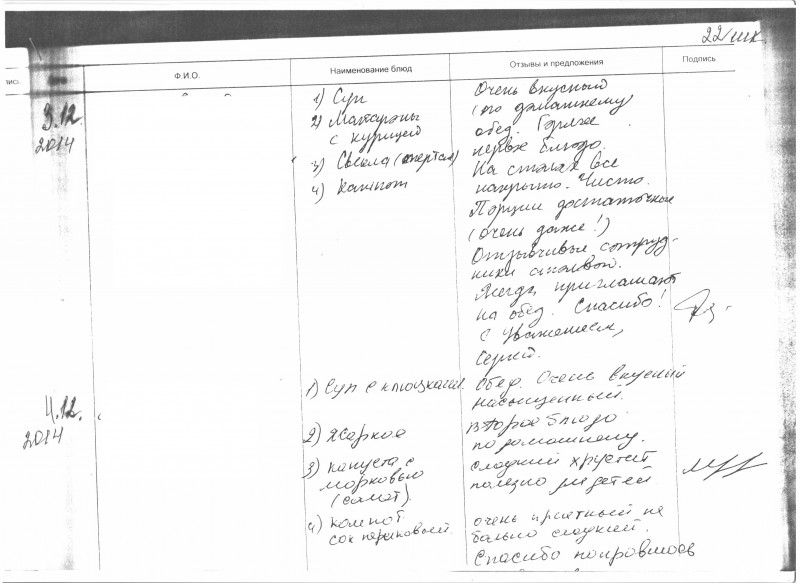 22/шк
Ф.И.О.
Наименование блюд
Отзывы и предложения
Подпись
3.12.
2014
1) Суп
2) Макароны
с курицей
3) Свекла (тертая)
4) Компот
Очень вкусный
(по домашнему
обед. Горячее
первое блюдо.
На столах все
накрыто. Чисто.
Порции достаточные
(очень даже!)
Отзывчивые сотруд-
ники столовой.
Всегда приглашают
на обед. Спасибо!
С уважением,
Сергей.
4.12.
2014
1) Суп с клюцками.
2) Жаркое
3) капуста с
морковью
(салат).
4) компот
сок персиковый.
Обед. Очень вкусный
насыщенный.
Второе блюдо
по домашнему.
сладкий хрустит
полезно для детей
очень приятный не
больно сладкий.
Спасибо понравилось